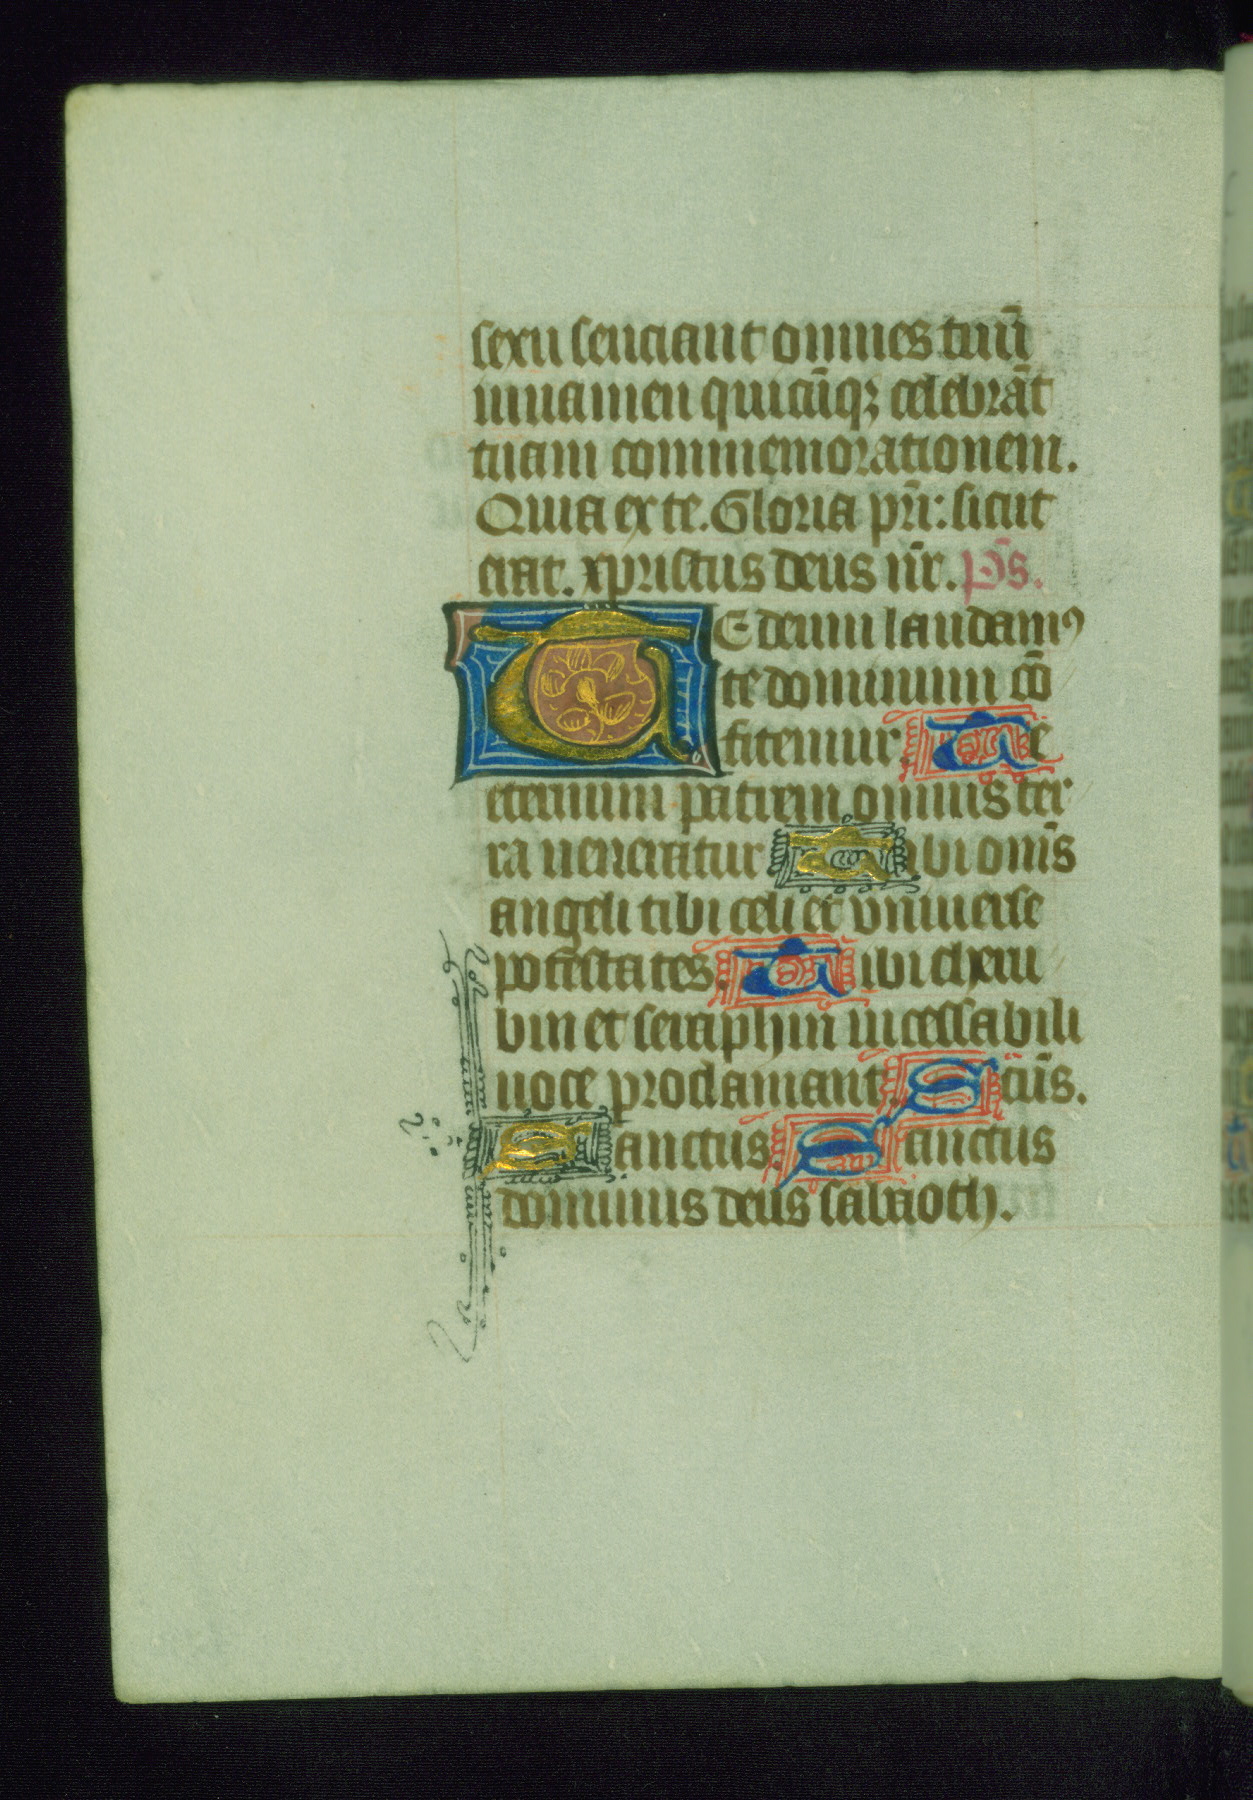 sexu senciant omnes tuū
iuuamen quicūqꝫ celebrāt
tuam commemorationem.
Quia ex te. Gloria pr̄i: sicut
erat. xpristus deus nr̄. Ps̄.
TE deum laudamꝰ
te dominum cō
fitemur. Te
eternum patrem omnis ter
ra ueneratur Tibi om̄s
angeli tibi celi et vniuerse
potestates. Tibi cheru
bin et seraphin incessabili
uoce proclamant. Sctūs.
Sanctus. Sanctus
dominus deus sabaoth.